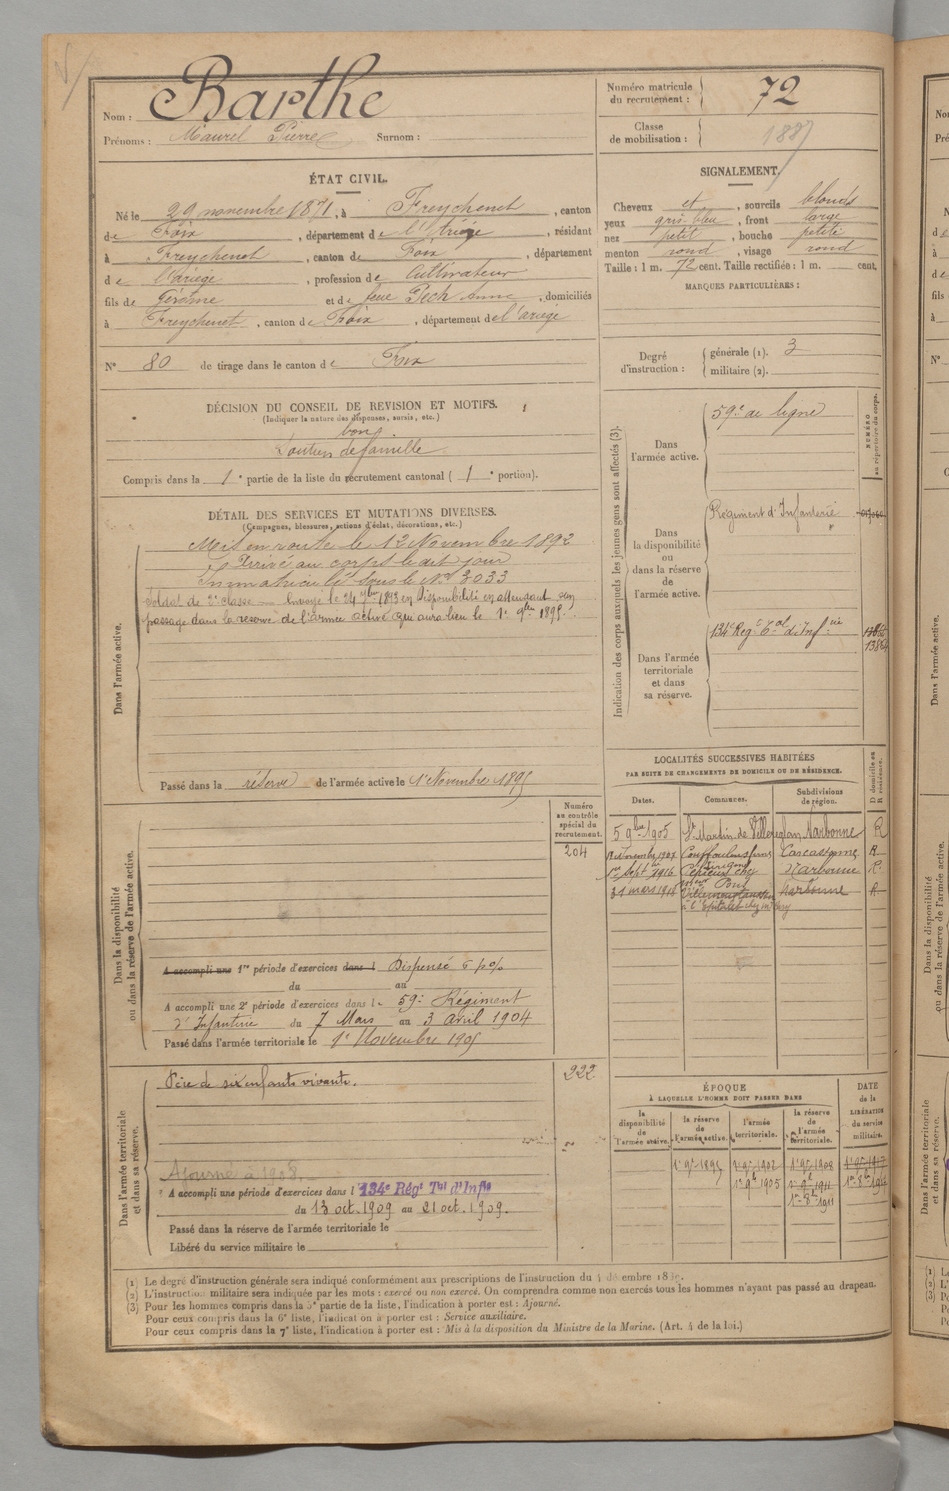 Nom : Barthe
Prénoms : Maurel Pierre Surnom :
Numéro matricule du recrutement : 72
Classe de mobilisation : 1887
ÉTAT CIVIL.
Né le 29 novembre 1871, à Freychenet, canton
de Foix, département de l'Ariège, résidant
à Freychenet, canton de Foix, département
de l'ariège, profession de Cultivateur
fils de Jérôme et de feue Pech Anne, domiciliés
à Freychenet, canton de Foix, département de l'ariège
N° 80 de tirage dans le canton de Foix
SIGNALEMENT.
Cheveux et, sourcils blonds
yeux gris bleu, front large
nez petit, bouche petite
menton rond, visage rond
Taille : 1 m. 72 cent. Taille rectifiée : 1 m. cent.
MARQUES PARTICULIÈRES :
Degré d'instruction : générale (1). 3
militaire (2).
DÉCISION DU CONSEIL DE REVISION ET MOTIFS.
(Indiquer la nature des dispenses, sursis, etc.)
bon
Soutien de famille
Compris dans la 1e partie de la liste du recrutement cantonal ( 1e portion).
DÉTAIL DES SERVICES ET MUTATIONS DIVERSES.
(Campagnes, blessures, actions d'éclat, décorations, etc.)
Dans l'armée active.
Mis en route le 12 Novembre 1892
Arrivé au corps le dit jour
Immatriculé sous le N° 3033
Soldat de 2e classe — Envoyé le 24 7bre 1893 en disponibilité en attendant son
passage dans la réserve de l'armée active qui aura lieu le 1er 9bre 1895.
Passé dans la réserve de l'armée active le 1er Novembre 1895
Indication des corps auxquels les jeunes gens sont affectés (3).
NUMÉRO au répertoire du corps.
Dans l'armée active.
59e de ligne
Dans la disponibilité ou dans la réserve de l'armée active.
Régiment d'Infanterie
Dans l'armée territoriale et dans sa réserve.
134e Regt Tal d'Infie
LOCALITÉS SUCCESSIVES HABITÉES
PAR SUITE DE CHANGEMENTS DE DOMICILE OU DE RÉSIDENCE.
Dates. Communes. Subdivisions de région. D domicile ou R résidence.
5 9bre 1905 St Martin de Villereglan Narbonne R
Novembre 1907 Couffoulens Carcassonne R
1er Septbre 1916 Narbonne R
31 mars 1918 Narbonne R
Dans la disponibilité ou dans la réserve de l'armée active.
Numéro au contrôle spécial du recrutement.
204
A accompli une 1re période d'exercices dans l Dispensé 6 p%
du au
A accompli une 2e période d'exercices dans le 59e Régiment
d'Infanterie du 7 Mars au 3 Avril 1904
Passé dans l'armée territoriale le 1er Novembre 1905
Dans l'armée territoriale et dans sa réserve.
222
Père de six enfants vivants.
Ajourné à 1908.
A accompli une période d'exercices dans l 134e Régt Tal d'Infie
du 13 oct. 1909 au 21 oct. 1909.
Passé dans la réserve de l'armée territoriale le
Libéré du service militaire le
ÉPOQUE
À LAQUELLE L'HOMME DOIT PASSER DANS
DATE de la LIBÉRATION du service militaire.
la disponibilité de l'armée active. la réserve de l'armée active. l'armée territoriale. la réserve de l'armée territoriale.
1er 9bre 1895 1er 9bre 1902 1er 9bre 1908 1er 9bre 1917
1er 9bre 1905 1er 9bre 1911
1er 8bre 1911
(1) Le degré d'instruction générale sera indiqué conformément aux prescriptions de l'instruction du
(2) L'instruction militaire sera indiquée par les mots : exercé ou non exercé. On comprendra comme non exercés tous les hommes n'ayant pas passé au drapeau.
(3) Pour les hommes compris dans la 5e partie de la liste, l'indication à porter est : Ajourné.
Pour ceux compris dans la 6e liste, l'indication à porter est : Service auxiliaire.
Pour ceux compris dans la 7e liste, l'indication à porter est : Mis à la disposition du Ministre de la Marine. (Art. 4 de la loi.)